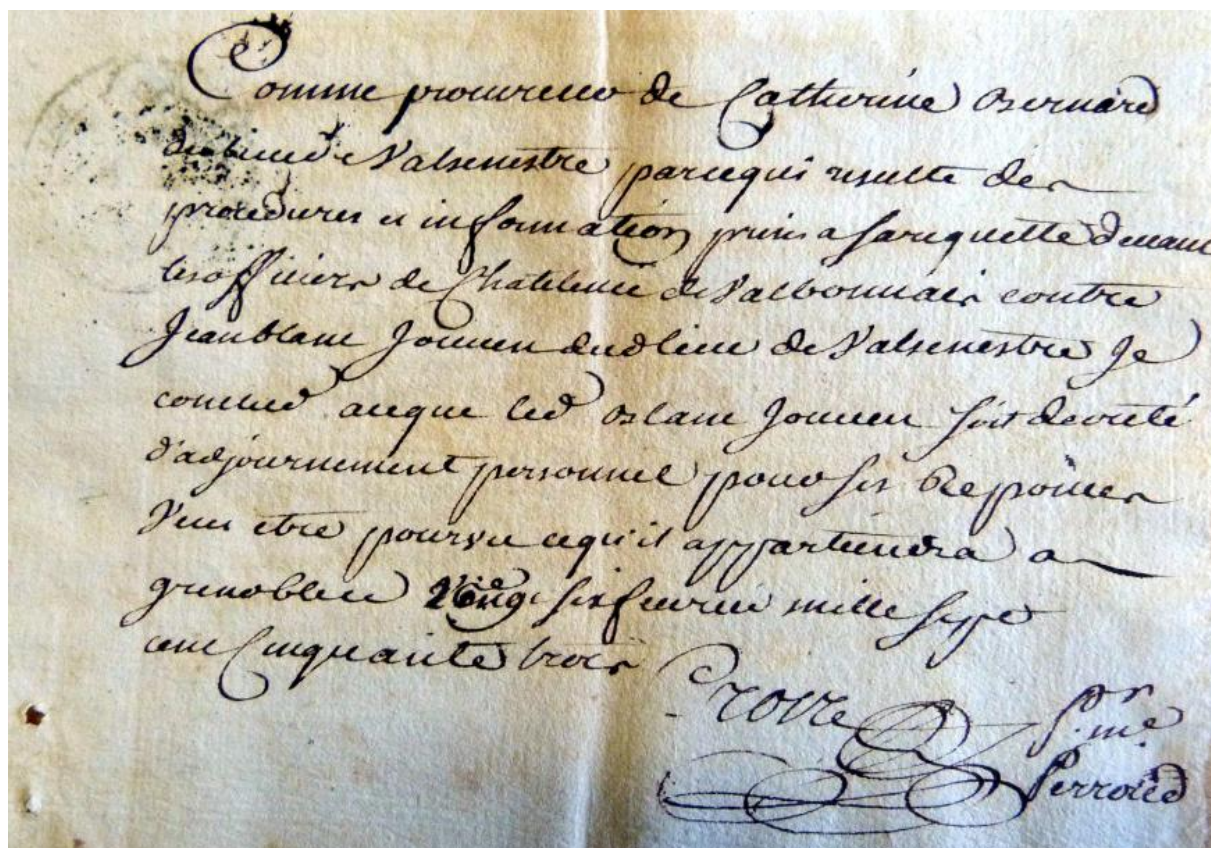 Comme procureur de Catherine Bernard
du lieu de Valsenestre parcequi resulte des
procedures et information prins a sa requette devant
les officiers de Chatelenie de Valbonnais contre
Jean blanc Jouven dud lieu de Valsenestre Je
conclud aceque led blanc Jouven soit decreté
d'adjournement personnel pour ses Reponces
Veues etre pourvu cequ'il appartiendra a
grenoble vingt six fevrier mille sept
cent Cinquante trois
pr me
Perroud